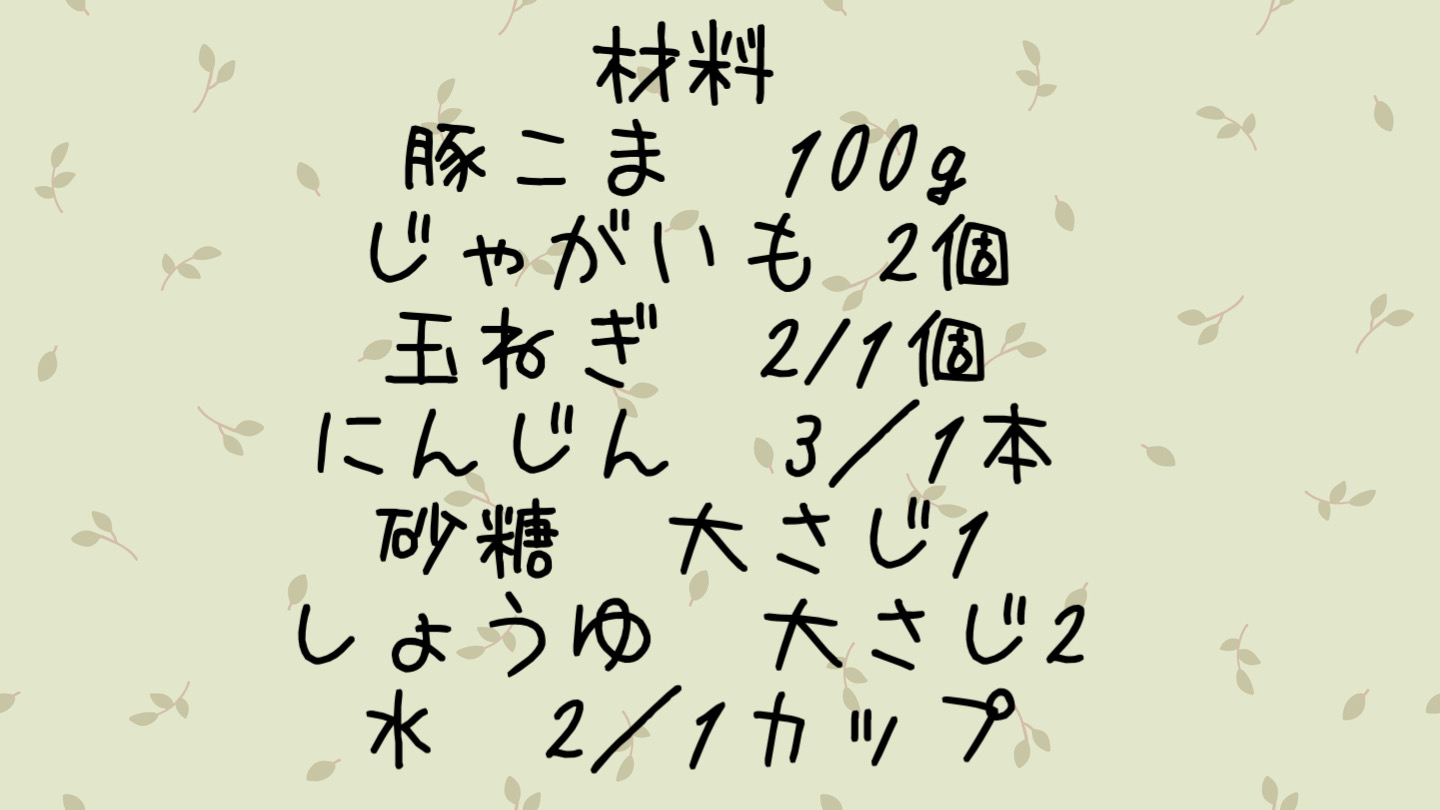 材料
豚こま 100g
じゃがいも 2個
玉ねぎ 2/1個
にんじん 3/1本
砂糖 大さじ1
しょうゆ 大さじ2
水 2/1カップ